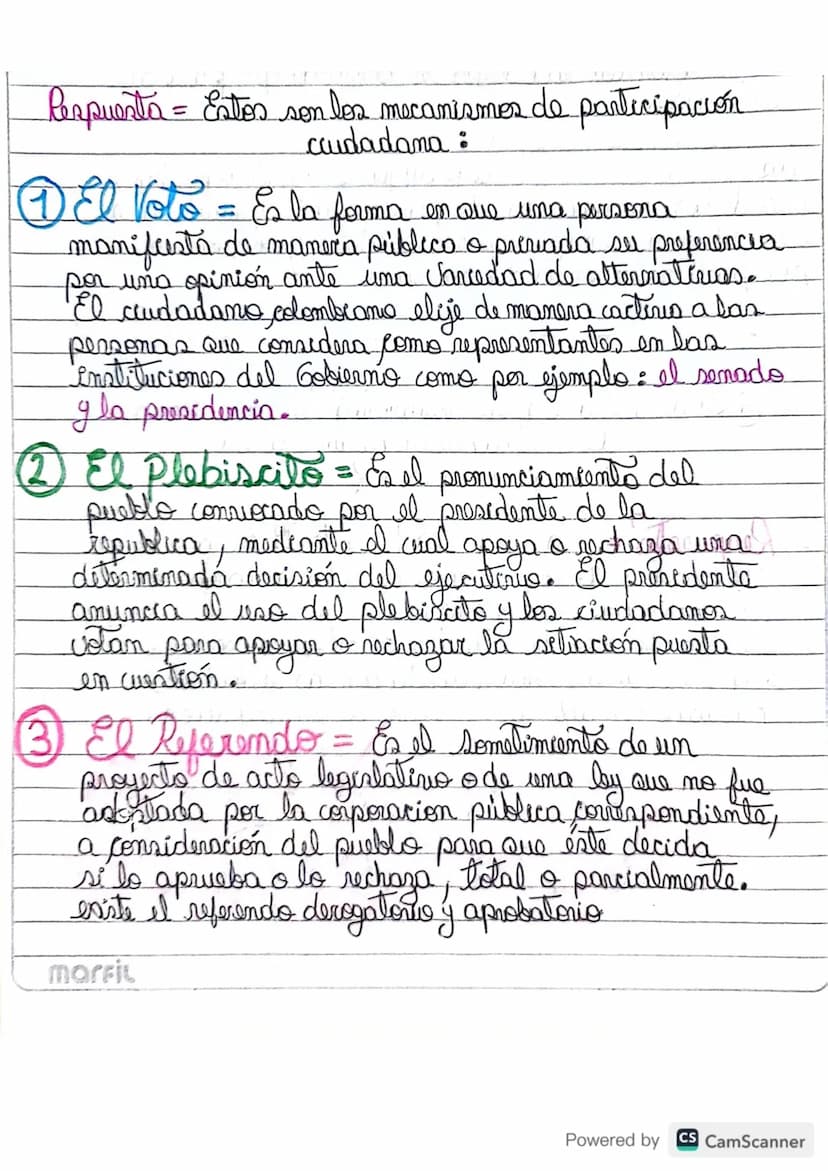 Respuesta = Estos son los mecanismos de participación
ciudadana :
1 El Voto = Es la forma en que una persona
manifiesta de manera pública o privada su preferencia
por una opinión ante una variedad de alternativas.
El ciudadano colombiano elije de manera activa a las
personas que considera como representantes en las
instituciones del Gobierno como por ejemplo : el senado
y la presidencia.
2 El Plebiscito = Es el pronunciamiento del
pueblo convocado por el presidente de la
republica, mediante el cual apoya o rechaza una
determinada decisión del ejecutivo. El presidente
anuncia el uso del plebiscito y los ciudadanos
votan para apoyar o rechazar la situación puesta
en cuestión.
3 El Referendo = Es el sometimiento de un
proyecto de acto legislativo o de una ley que no fue
adoptada por la corporacion pública correspondiente,
a consideración del pueblo para que éste decida
si lo aprueba o lo rechaza, total o parcialmente.
existe el referendo derogatorio y aprobatorio
marfil
Powered by CS CamScanner